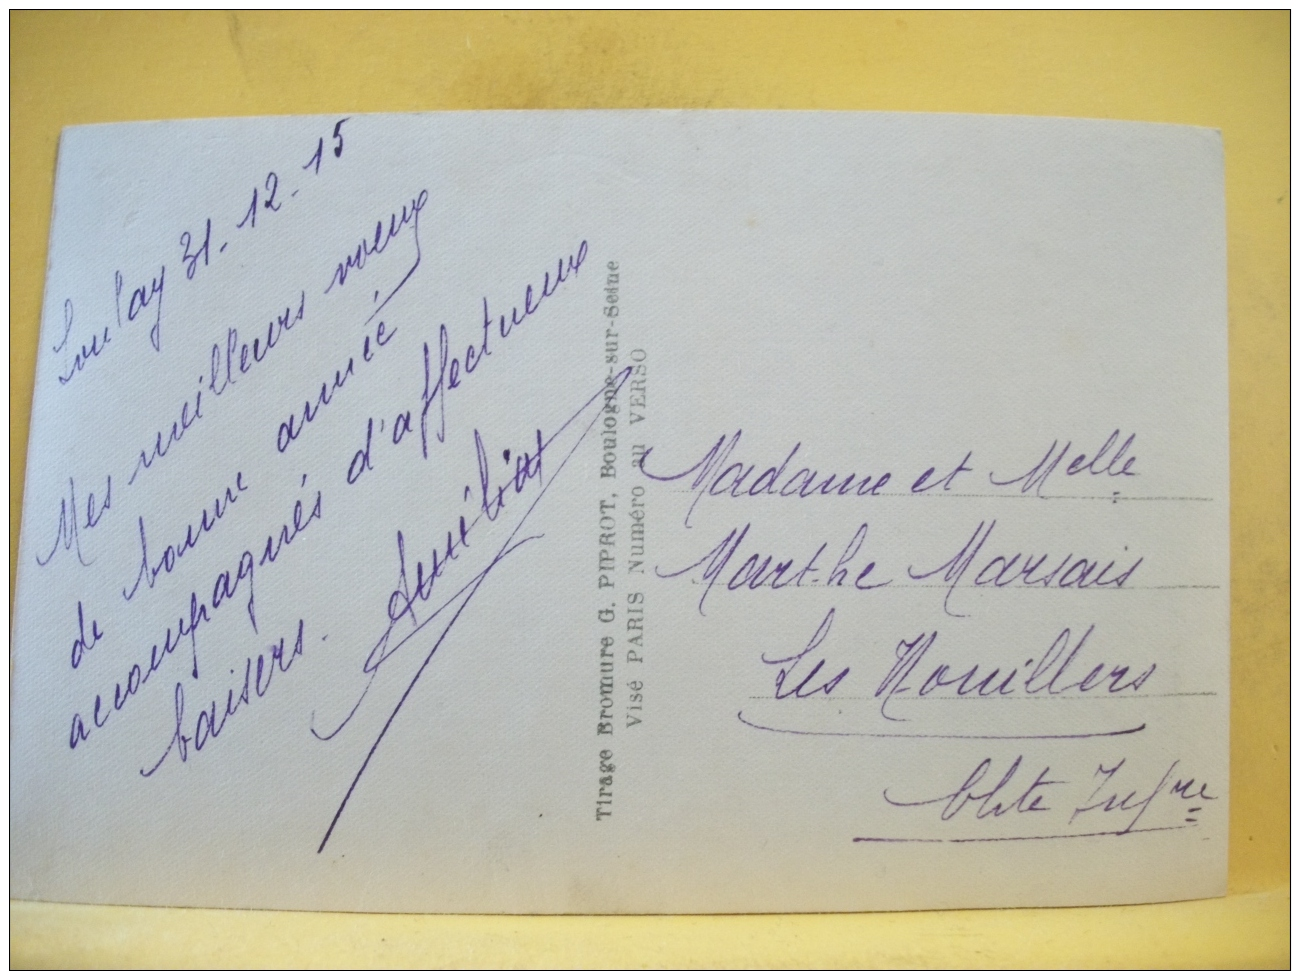 Loulay 31-12-15
Mes meilleurs voeux
de bonne année
accompagnés d'affectueux
baisers.
Tirage Bromure G. PIPROT, Boulogne-sur-Seine
Visé PARIS Numéro au VERSO
Madame et Melle
Marthe Marsais
Les Nouillers
Chte Infre